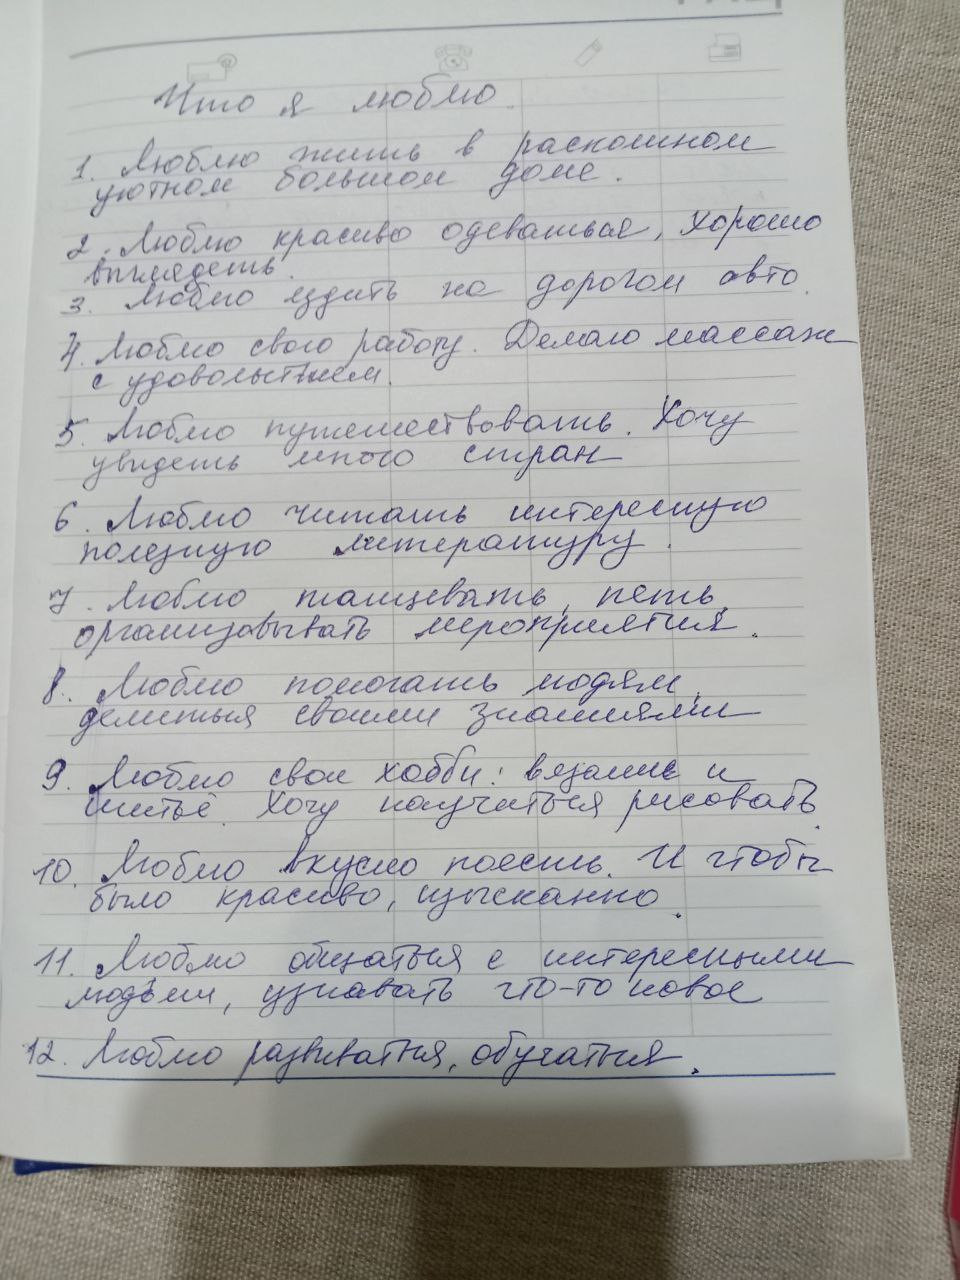 Что я люблю.
1. Люблю жить в раскошном
уютном большом доме.
2. Люблю красиво одеваться, хорошо
выглядеть.
3. Люблю ездить на дорогом авто.
4. Люблю свою работу. Делаю массаж
с удовольствием.
5. Люблю путешествовать. Хочу
увидеть много стран
6. Люблю читать интересную
полезную литературу.
7. Люблю танцевать, петь,
организовывать мероприятия.
8. Люблю помогать людям,
делиться своими знаниями
9. Люблю свои хобби: вязание и
шитьё. Хочу научиться рисовать.
10. Люблю вкусно поесть. И чтобы
было красиво, изысканно.
11. Люблю общаться с интересными
людьми, узнавать что-то новое
12. Люблю развиваться, обучаться.